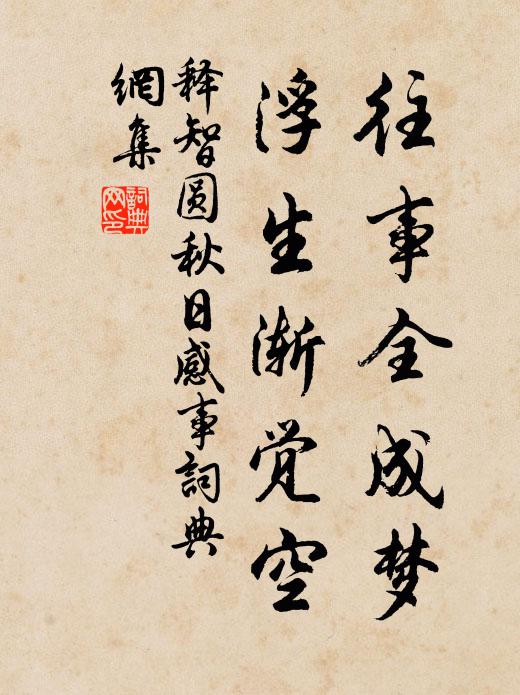 往事全成梦
浮生渐觉空
释智圆秋日感事詞典
網集
詞典
网印